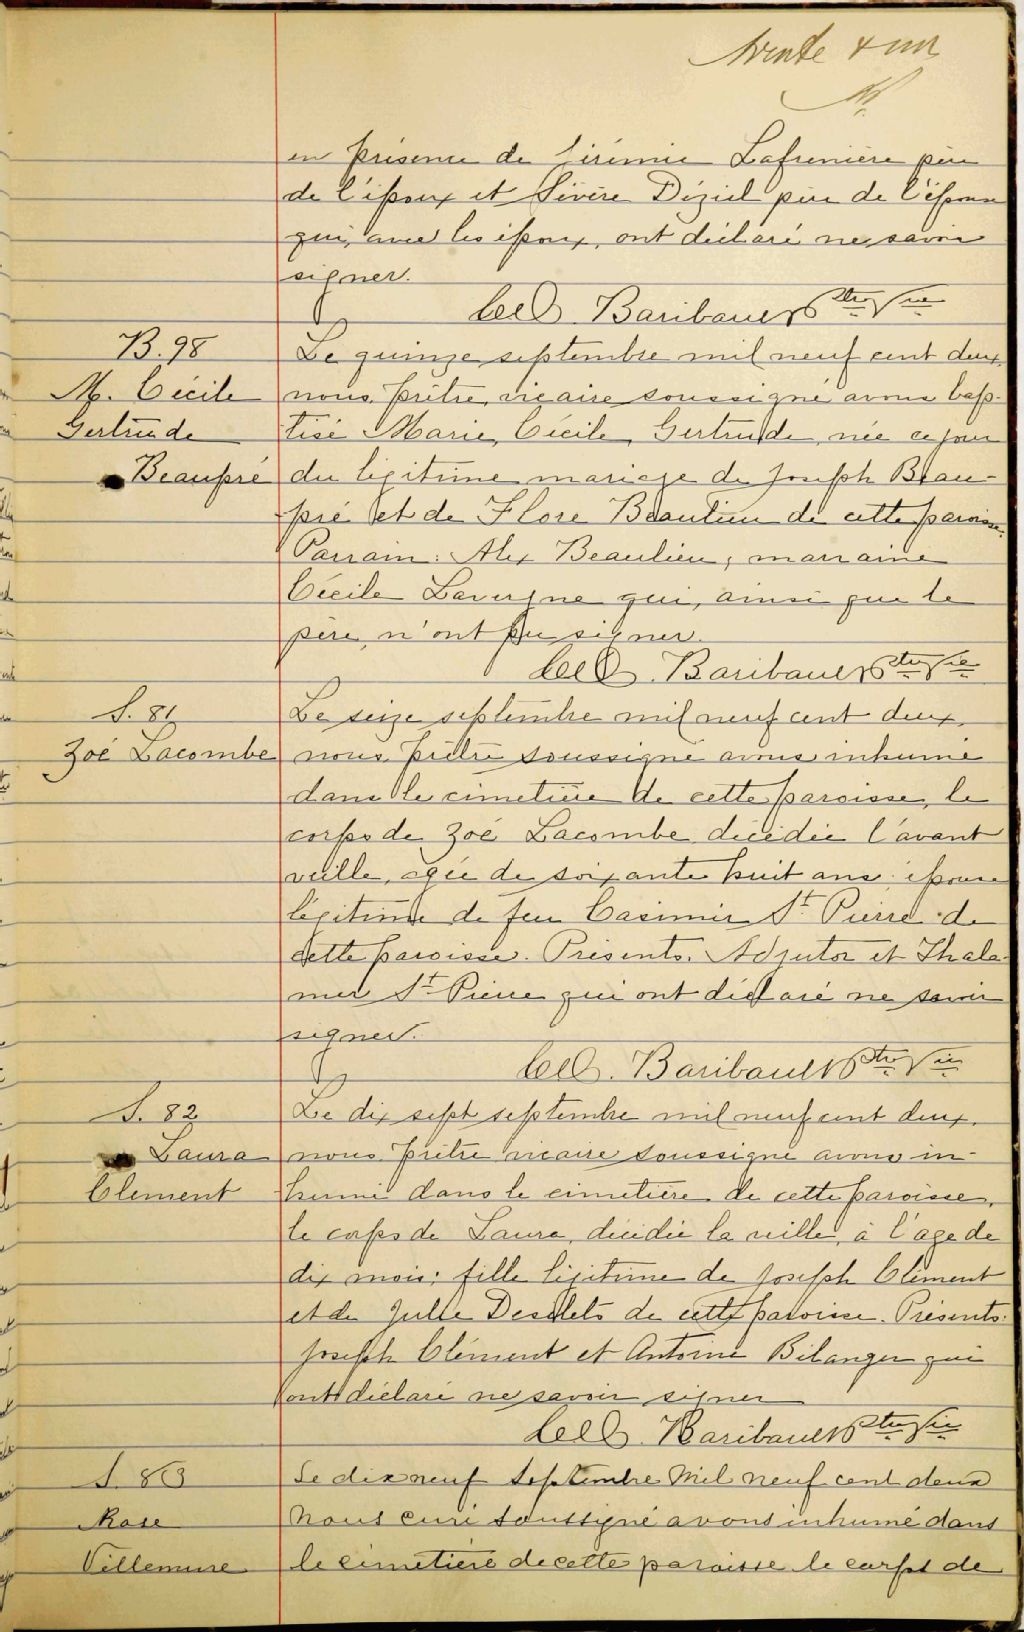 trente & un
en présence de Jérémie Lafrenière père
de l'époux et Sévère Déziel père de l'épouse
qui, avec les époux, ont déclaré ne savoir
signer.
Baribault Ptre Vic
B. 98
M. Cécile
Gertrude
Beaupré
Le quinze septembre mil neuf cent deux,
nous, prêtre, vicaire soussigné avons bap-
tisé Marie, Cécile, Gertrude, née ce jour
du légitime mariage de Joseph Beau-
pré et de Flore Beaulieu de cette paroisse.
Parrain: Alex Beaulieu, marraine
Cécile Lavergne qui, ainsi que le
père, n'ont pu signer.
Baribault Ptre Vic
S. 81
Zoé Lacombe
Le seize septembre mil neuf cent deux,
nous, prêtre soussigné avons inhumé
dans le cimetière de cette paroisse, le
corps de Zoé Lacombe, décédée l'avant
veille, agée de soixante huit ans, épouse
légitime de feu Casimir St. Pierre de
cette paroisse. Présents: Adjutor et Thala-
mer St. Pierre qui ont déclaré ne savoir
signer.
Baribault Ptre Vic
S. 82
Laura
Clement
Le dix sept septembre mil neuf cent deux,
nous prêtre vicaire soussigné avons in-
humé dans le cimetière de cette paroisse,
le corps de Laura, décédée la veille, à l'age de
dix mois; fille légitime de Joseph Clément
et de Julie Desilets de cette paroisse. Présents:
Joseph Clément et Antoine Bélanger qui
ont déclaré ne savoir signer
Baribault Ptre Vic
S. 83
Rose
Villemure
Le dix neuf Septembre Mil neuf cent deux
Nous curé soussigné avons inhumé dans
le cimetière de cette paroisse le corps de